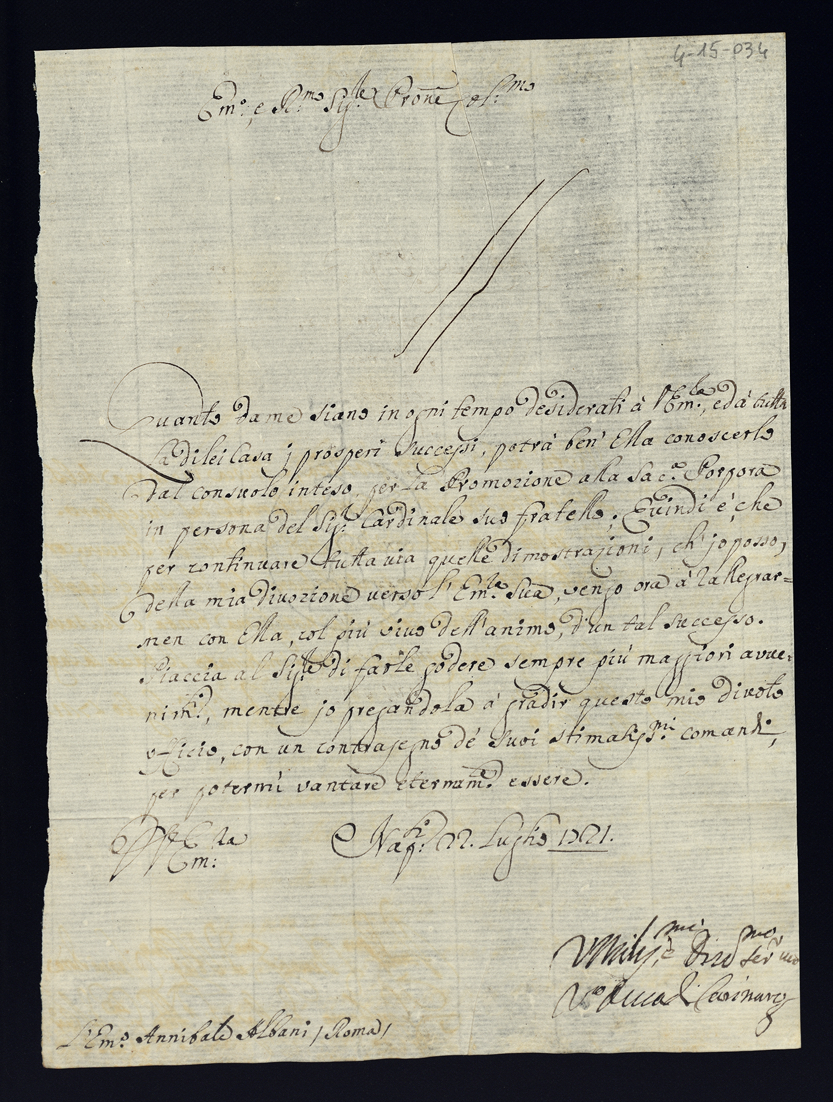 4-15-034
Em:o, e R:mo Sig:re Prone Col:mo
Quanto da me siano in ogni tempo desiderati à V.Em:za, ed à tutta
la di lei Casa i prosperi successi, potrà ben' Ella conoscerlo
dal consuolo inteso, per la Promozione alla Sac:a Porpora
in persona del Sig:r Cardinale suo fratello; Quindi è, che
per continuare tutta via quelle dimostrazioni, ch' io posso,
della mia divozione verso l'Em:za Sua, vengo ora à rallegrar=
men con Ella, col più vivo dell'animo, d'un tal successo.
Piaccia al Sig:re di farle godere sempre più maggiori avve=
nim:ti, mentre io pregandola à gradir questo mio divoto
officio, con un contrasegno de' suoi stimatiss:mi comandi,
per potermi vantare eternam:te essere.
Em:za
Nap:li 22. Luglio 1721.
L'Em:o Annibale Albani / Roma /